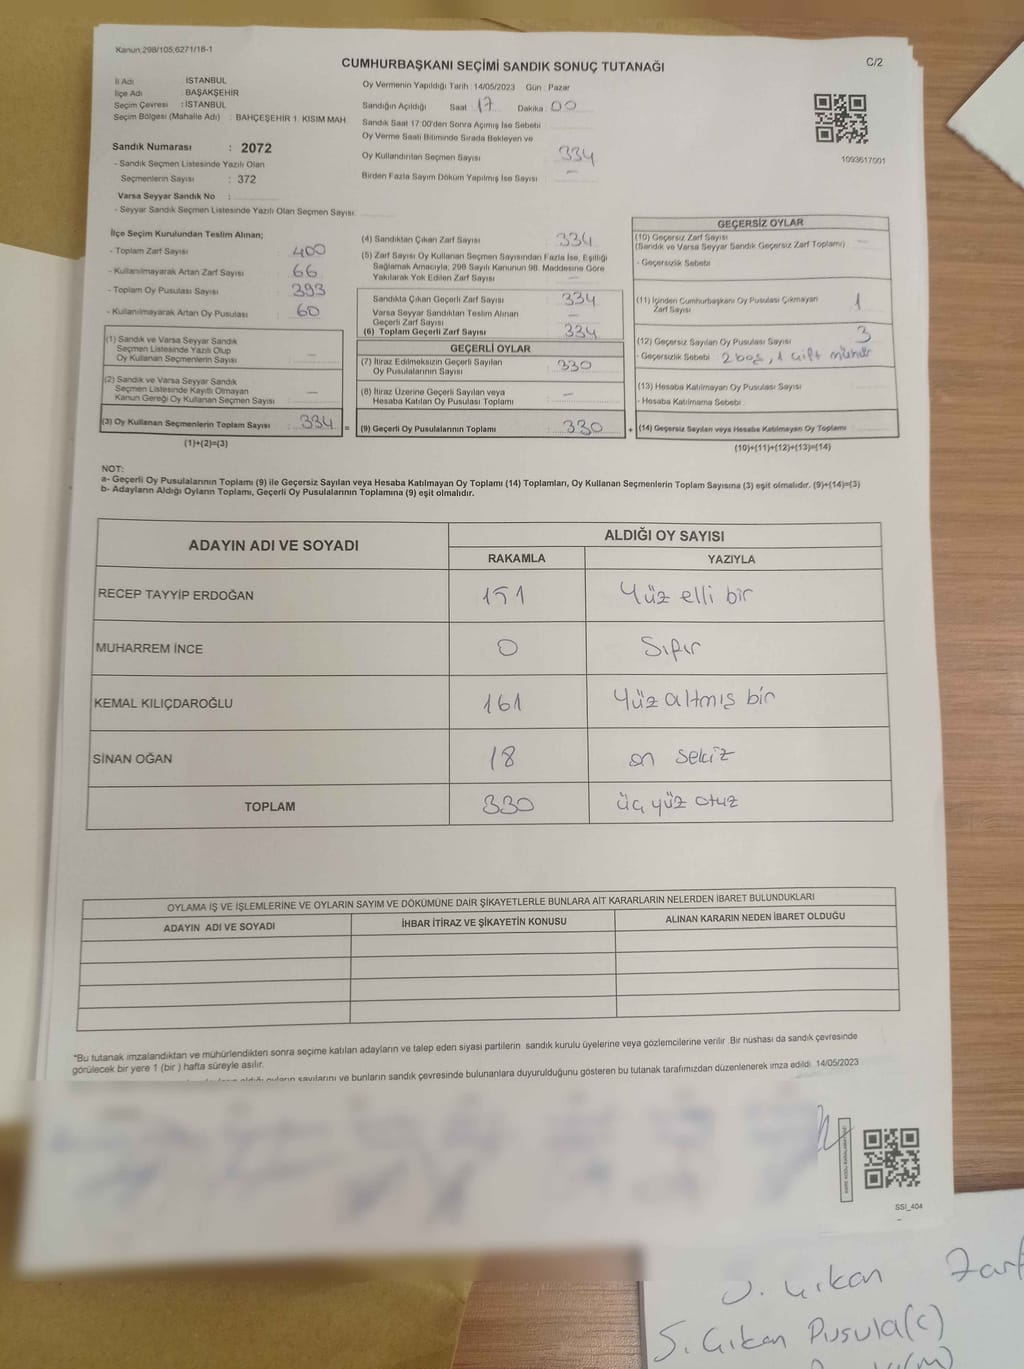 Kanun;298/105;6271/18-1
CUMHURBAŞKANI SEÇİMİ SANDIK SONUÇ TUTANAĞI
C/2
İl Adı : İSTANBUL
İlçe Adı : BAŞAKŞEHİR
Seçim Çevresi : İSTANBUL
Seçim Bölgesi (Mahalle Adı) : BAHÇEŞEHİR 1. KISIM MAH.
Sandık Numarası : 2072
- Sandık Seçmen Listesinde Yazılı Olan
Seçmenlerin Sayısı : 372
Varsa Seyyar Sandık No :
- Seyyar Sandık Seçmen Listesinde Yazılı Olan Seçmen Sayısı:
Oy Vermenin Yapıldığı Tarih : 14/05/2023 Gün : Pazar
Sandığın Açıldığı Saat 17 Dakika 00
Sandık Saat 17:00'den Sonra Açımış İse Sebebi
Oy Verme Saati Bitiminde Sırada Bekleyen ve
Oy Kullandırılan Seçmen Sayısı 334
Birden Fazla Sayım Döküm Yapılmış İse Sayısı : —
1093617001
İlçe Seçim Kurulundan Teslim Alınan;
- Toplam Zarf Sayısı : 400
- Kullanılmayarak Artan Zarf Sayısı : 66
- Toplam Oy Pusulası Sayısı : 393
- Kullanılmayarak Artan Oy Pusulası : 60
(1) Sandık ve Varsa Seyyar Sandık
Seçmen Listesinde Yazılı Olup
Oy Kullanan Seçmenlerin Sayısı : —
(2) Sandık ve Varsa Seyyar Sandık
Seçmen Listesinde Kayıtlı Olmayan
Kanun Gereği Oy Kullanan Seçmen Sayısı : —
(3) Oy Kullanan Seçmenlerin Toplam Sayısı : 334 =
(1)+(2)=(3)
(4) Sandıktan Çıkan Zarf Sayısı : 334
(5) Zarf Sayısı Oy Kullanan Seçmen Sayısından Fazla İse, Eşitliği
Sağlamak Amacıyla; 298 Sayılı Kanunun 98. Maddesine Göre
Yakılarak Yok Edilen Zarf Sayısı : —
Sandıkta Çıkan Geçerli Zarf Sayısı : 334
Varsa Seyyar Sandıktan Teslim Alınan
Geçerli Zarf Sayısı : —
(6) Toplam Geçerli Zarf Sayısı : 334
GEÇERLİ OYLAR
(7) İtiraz Edilmeksizin Geçerli Sayılan
Oy Pusulalarının Sayısı : 330
(8) İtiraz Üzerine Geçerli Sayılan veya
Hesaba Katılan Oy Pusulası Toplamı : —
(9) Geçerli Oy Pusulalarının Toplamı : 330 +
GEÇERSİZ OYLAR
(10) Geçersiz Zarf Sayısı
(Sandık ve Varsa Seyyar Sandık Geçersiz Zarf Toplamı) —
- Geçersizlik Sebebi
(11) İçinden Cumhurbaşkanı Oy Pusulası Çıkmayan
Zarf Sayısı 1
(12) Geçersiz Sayılan Oy Pusulası Sayısı 3
- Geçersizlik Sebebi 2 boş, 1 çift mühür
(13) Hesaba Katılmayan Oy Pusulası Sayısı
- Hesaba Katılmama Sebebi
(14) Geçersiz Sayılan veya Hesaba Katılmayan Oy Toplamı
(10)+(11)+(12)+(13)=(14)
NOT:
a- Geçerli Oy Pusulalarının Toplamı (9) ile Geçersiz Sayılan veya Hesaba Katılmayan Oy Toplamı (14) Toplamları, Oy Kullanan Seçmenlerin Toplam Sayısına (3) eşit olmalıdır. (9)+(14)=(3)
b- Adayların Aldığı Oyların Toplamı, Geçerli Oy Pusulalarının Toplamına (9) eşit olmalıdır.
ADAYIN ADI VE SOYADI
ALDIĞI OY SAYISI
RAKAMLA YAZIYLA
RECEP TAYYİP ERDOĞAN 151 Yüz elli bir
MUHARREM İNCE 0 Sıfır
KEMAL KILIÇDAROĞLU 161 Yüz altmış bir
SİNAN OĞAN 18 on sekiz
TOPLAM 330 üç yüz otuz
OYLAMA İŞ VE İŞLEMLERİNE VE OYLARIN SAYIM VE DÖKÜMÜNE DAİR ŞİKAYETLERLE BUNLARA AİT KARARLARIN NELERDEN İBARET BULUNDUKLARI
ADAYIN ADI VE SOYADI İHBAR İTİRAZ VE ŞİKAYETİN KONUSU ALINAN KARARIN NEDEN İBARET OLDUĞU
*Bu tutanak imzalandıktan ve mühürlendikten sonra seçime katılan adayların ve talep eden siyasi partilerin sandık kurulu üyelerine veya gözlemcilerine verilir. Bir nüshası da sandık çevresinde
görülecek bir yere 1 (bir ) hafta süreyle asılır.
aldığı oyların sayılarını ve bunların sandık çevresinde bulunanlara duyurulduğunu gösteren bu tutanak tarafımızdan düzenlenerek imza edildi. 14/05/2023
SSI_404
Çıkan Zarf
S. Çıkan Pusula(C)